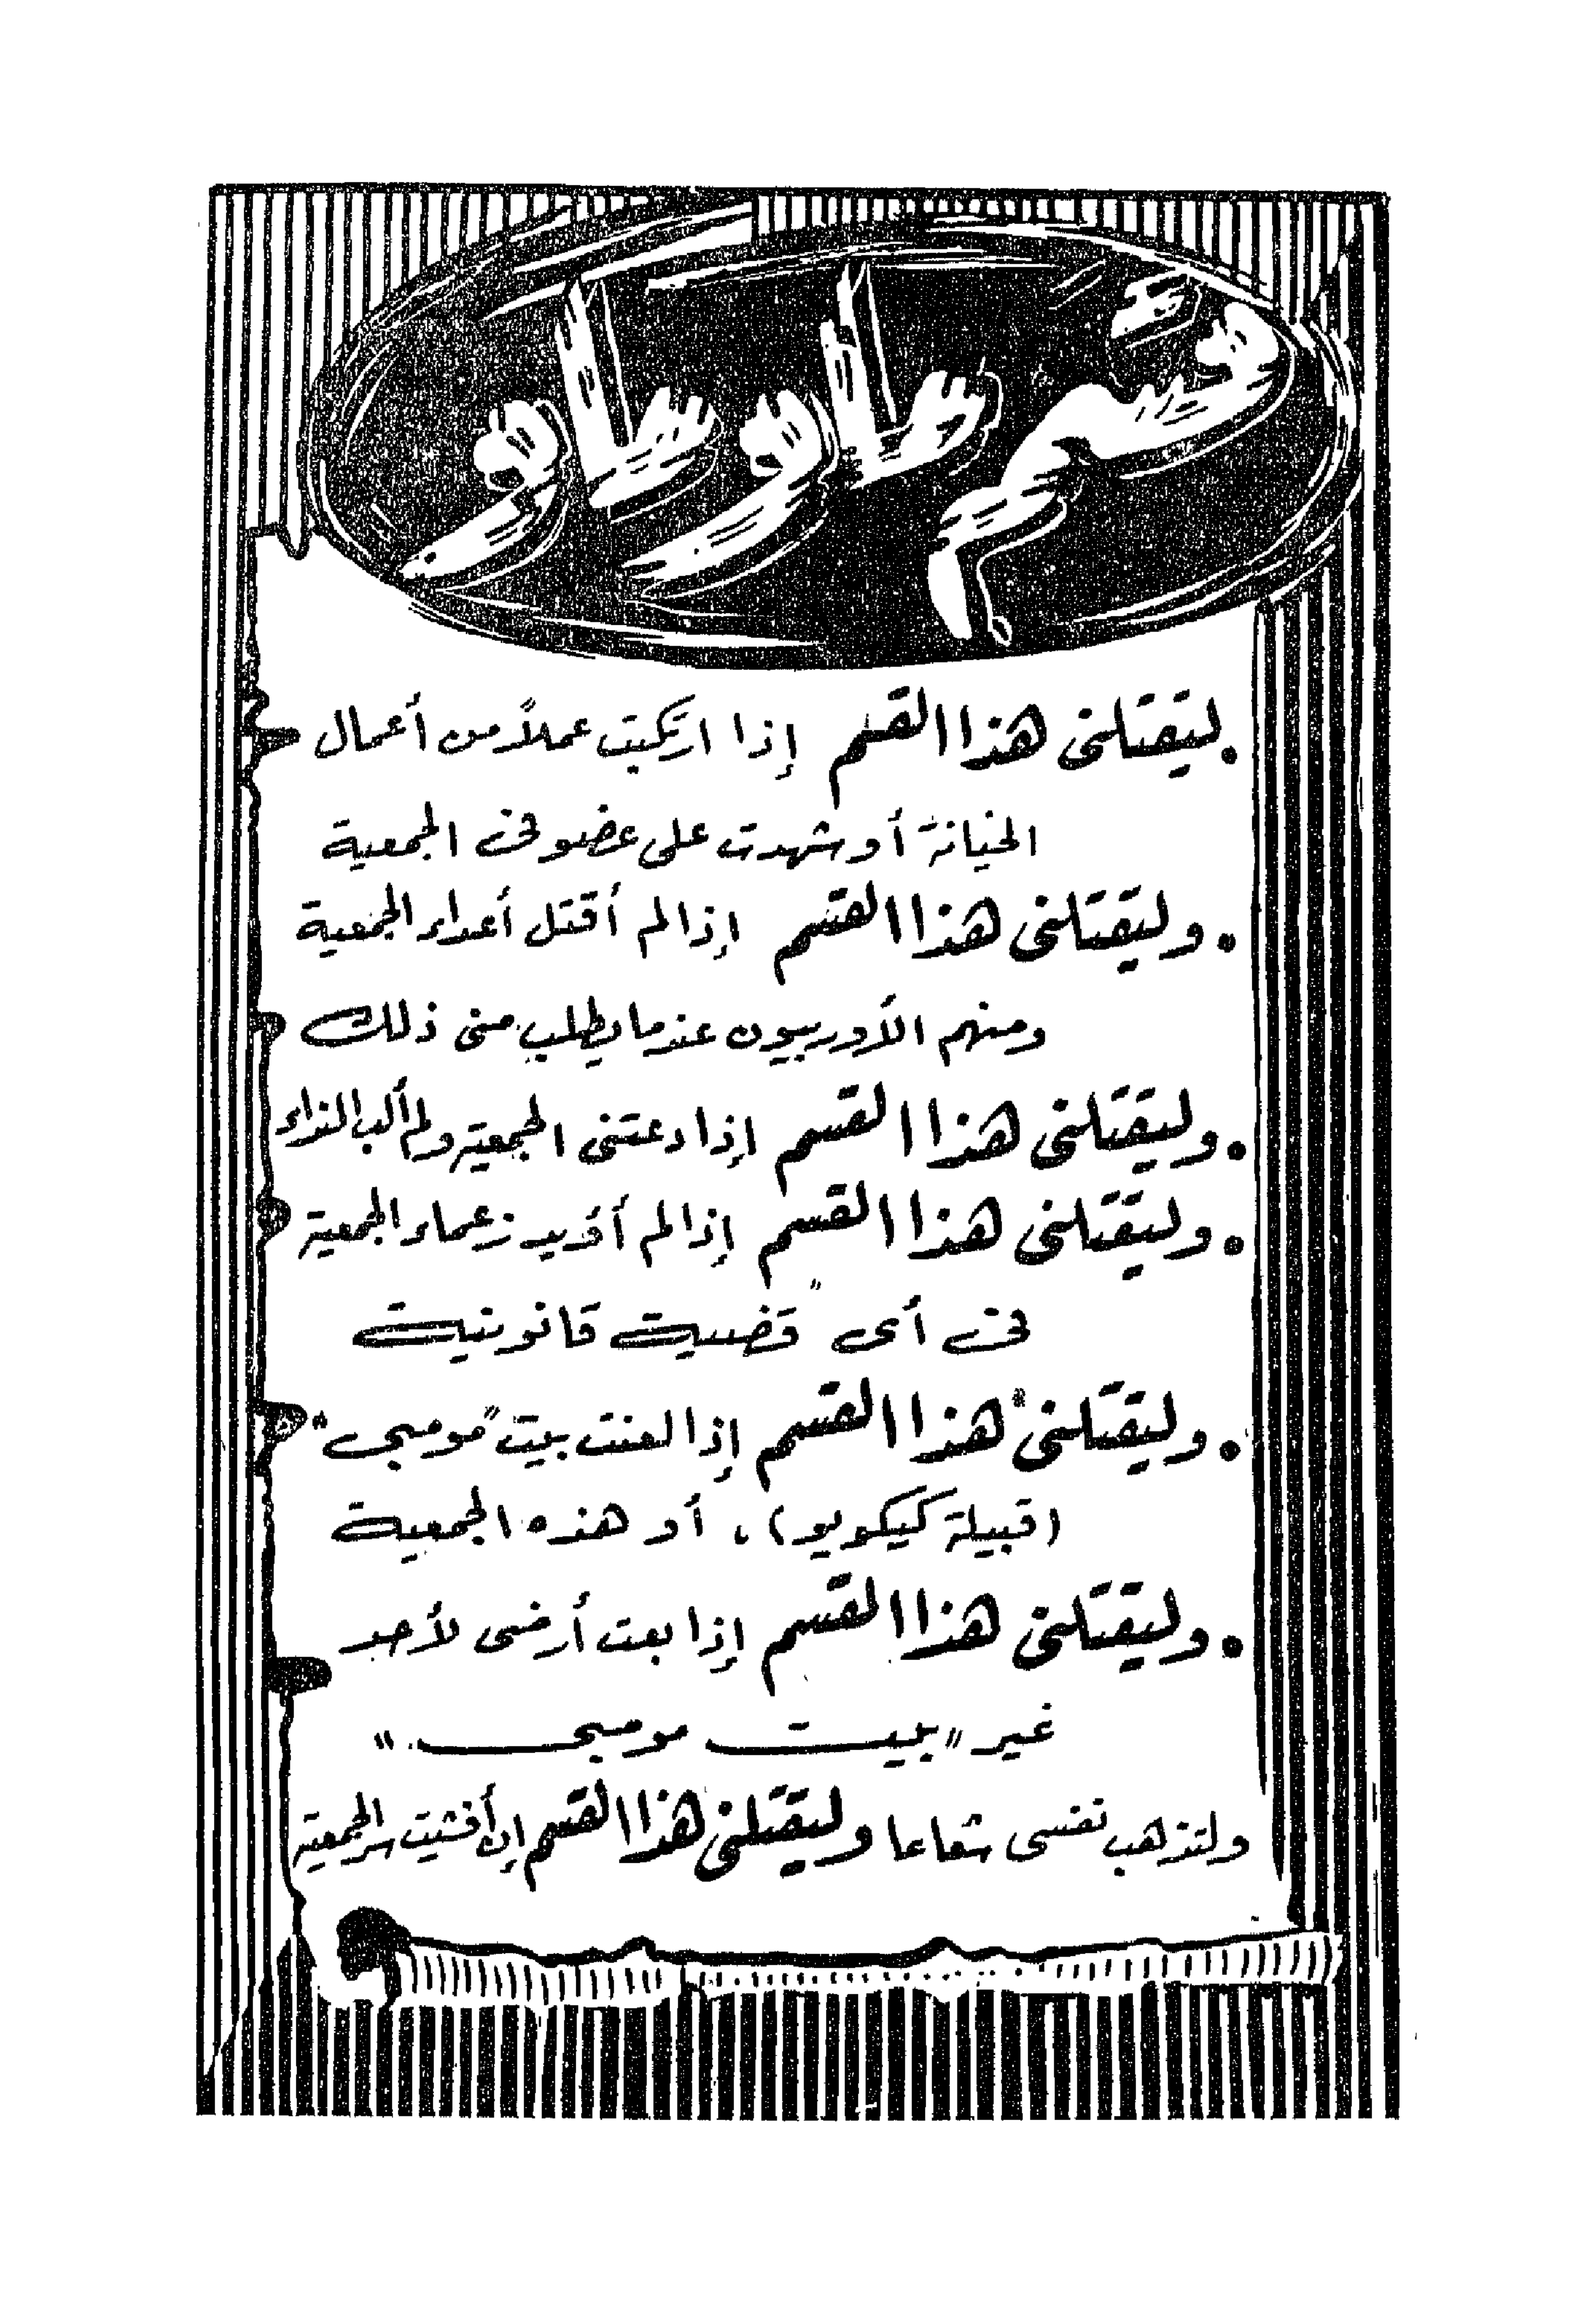 قسم ماو ماو
• ليقتلنى هذا القسم إذا ارتكبت عملاً من أعمال
الخيانة أو شهدت على عضو فى الجمعية
• وليقتلنى هذا القسم إذا لم أقتل أعداء الجمعية
ومنهم الأوربيون عندما يطلب منى ذلك
• وليقتلنى هذا القسم إذا دعتنى الجمعية ولم ألب النداء
• وليقتلنى هذا القسم إذا لم أؤيد زعماء الجمعية
فى أى قضية قانونية
• وليقتلنى هذا القسم إذا لعنت بيت "مومبى"
(قبيلة كيكويو)، أو هذه الجمعية
• وليقتلنى هذا القسم إذا بعت أرضى لأحد
غير "بيت مومبى"
ولتذهب نفسى شعاعا وليقتلنى هذا القسم إن أفشيت سر الجمعية